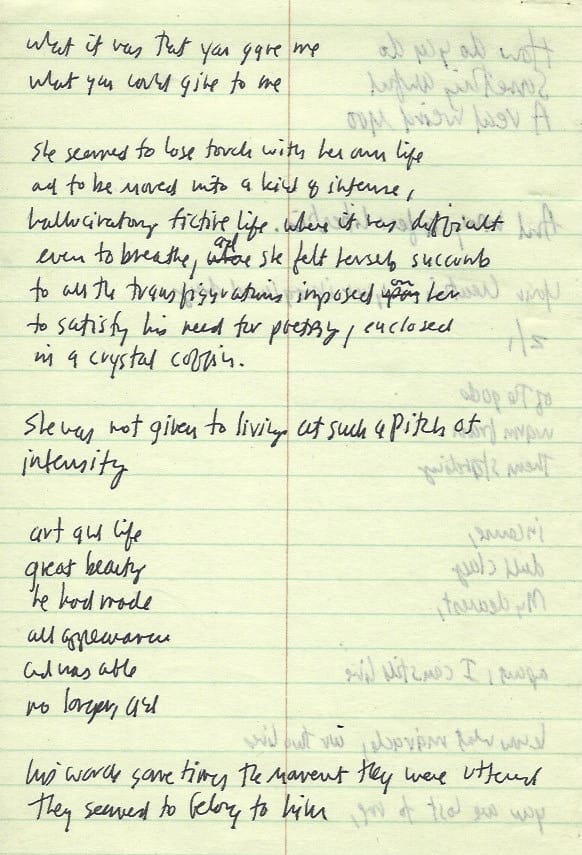 what it was that you gave me
what you could give to me
She seemed to lose touch with her own life
and to be moved into a kind of intense,
hallucinatory fictive life where it was difficult
even to breathe, and she felt herself succumb
to all the transfiggurations imposed on her
to satisfy his need for poetry, enclosed
in a crystal coffin.
She was not given to living at such a pitch of
intensity
art and life
great beauty
he had made
all appearance
and was able
no longer and
his words sometimes the moment they were uttered
they seemed to belong to him